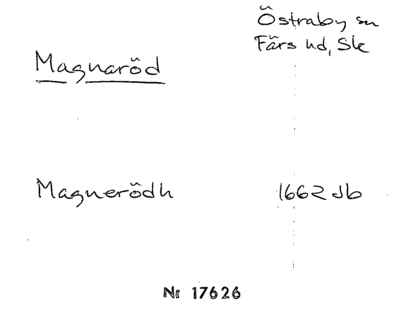 Östraby sn
Färs hd, Sk
Magnaröd
Magnerödh 1662 Jb
Nr 17626